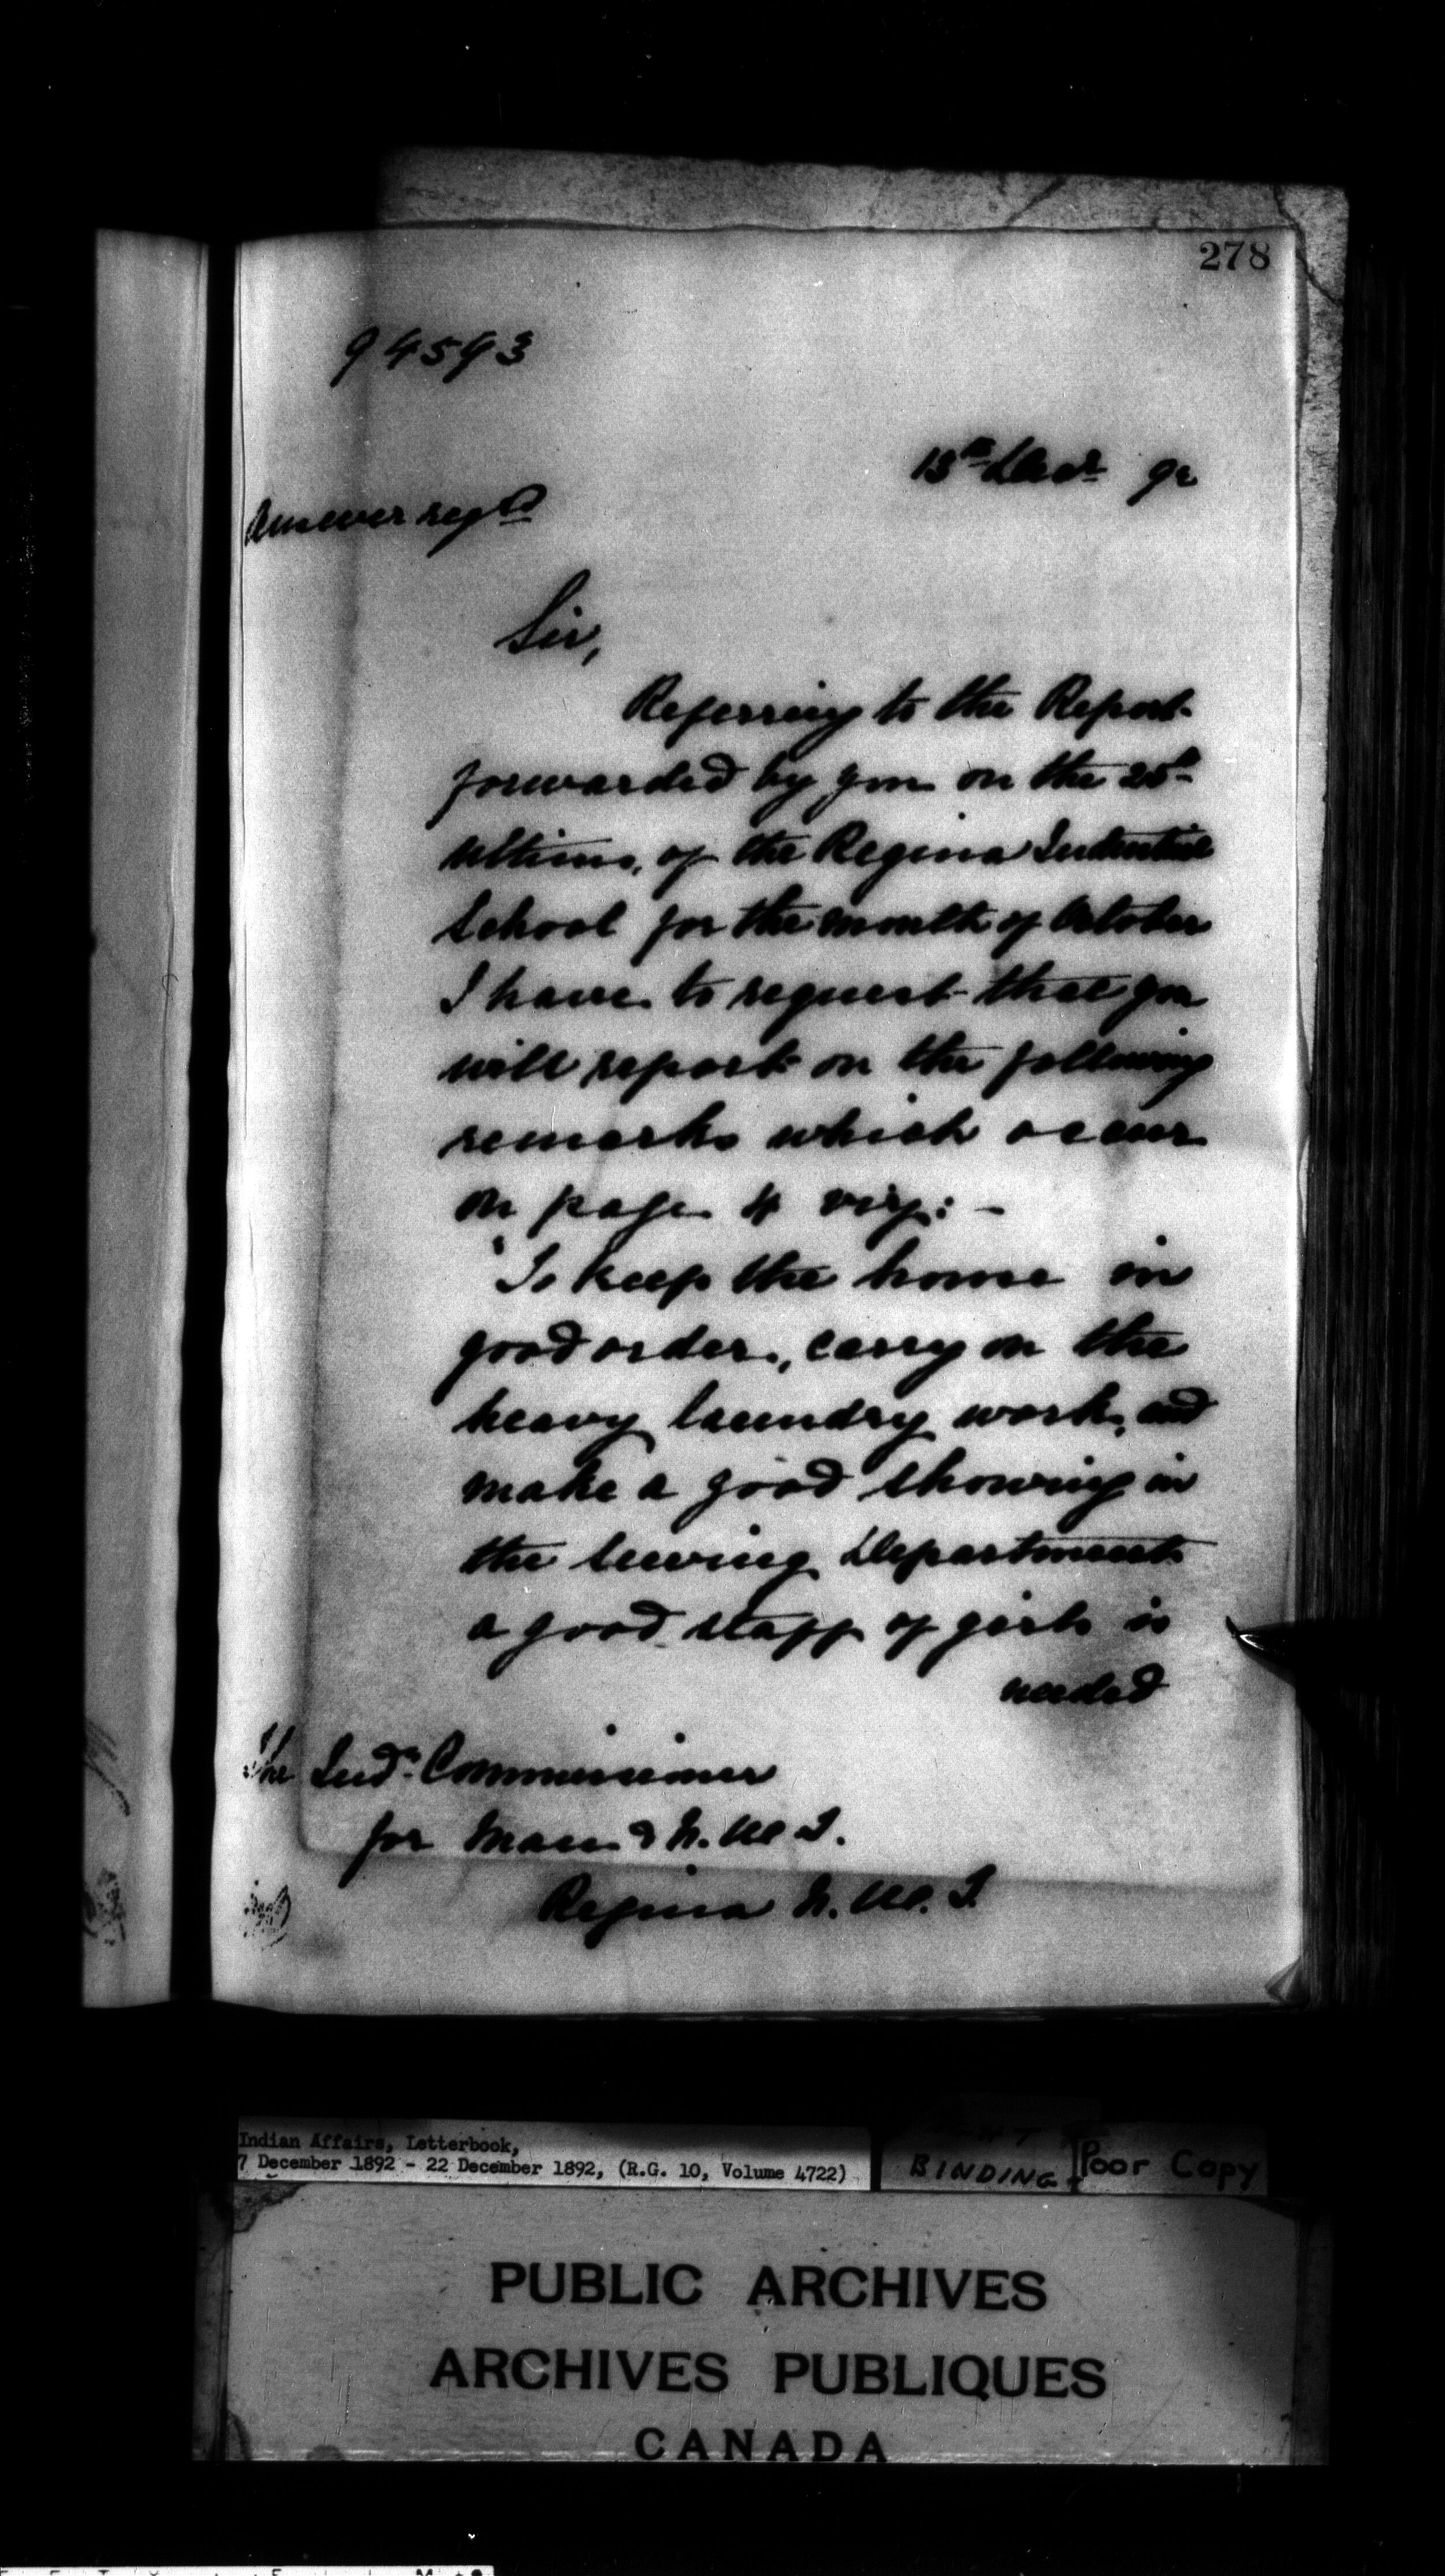 278
94593
15th Decr 92
Answer reqd
Sir,
Referring to the Report
forwarded by you on the 25th
ultimo, of the Regina Industrial
School for the month of October
I have to request that you
will report on the following
remarks which occur
on page 4 viz: -
"To keep the home in
good order, carry on the
heavy laundry work, and
make a good showing in
the sewing Department
a good staff of girls is
needed
The Indn Commissioner
for Man & N.W.T.
Regina N.W.T.
Indian Affairs, Letterbook,
7 December 1892 - 22 December 1892, (R.G. 10, Volume 4722)
BINDING
Poor Copy
PUBLIC ARCHIVES
ARCHIVES PUBLIQUES
CANADA